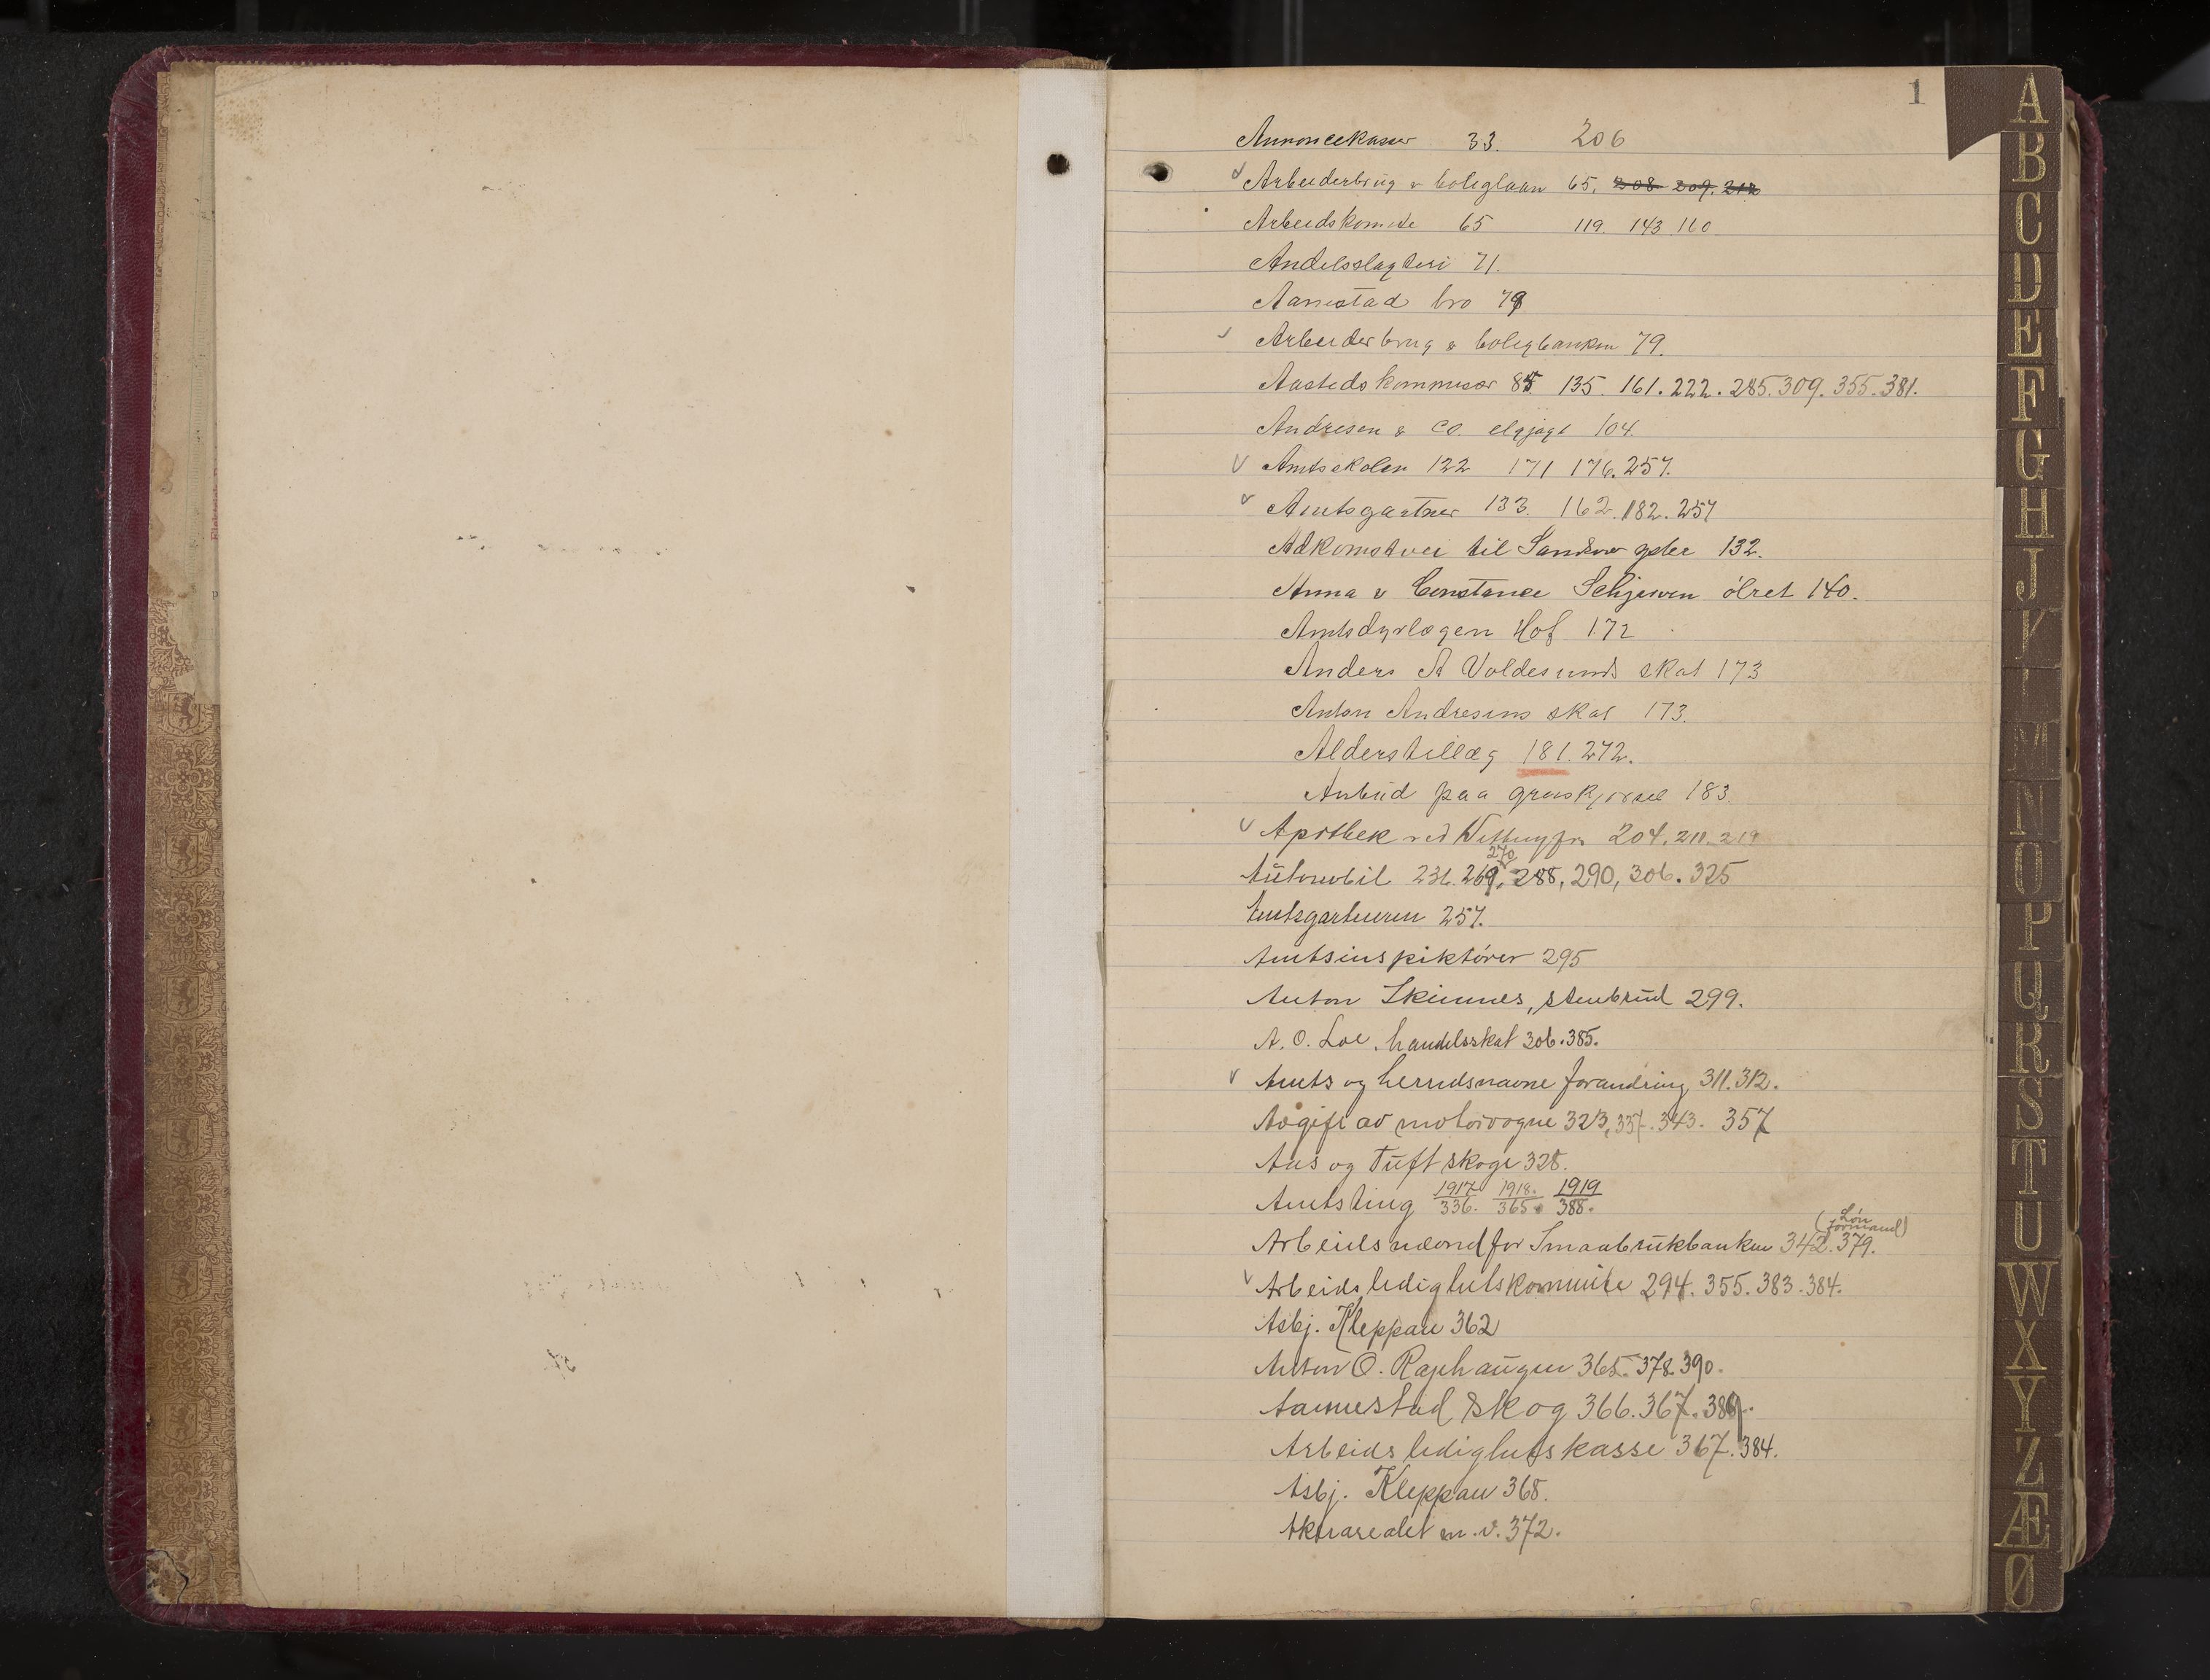 1
Annoncekasser 33. 206
Arbeiderbrug & boliglaan 65. 208 209. 212
Arbeidskomite 65 119. 143. 160
Andelsslagteri 71.
Aannestad bro 78
Arbeiderbrug & boligbanken 79.
Aastedskommisær 85 135. 161. 222. 285. 309. 355. 381.
Andresen & Co. elgjagt 104.
Amtsskolen 122 171 176. 257.
Amtsgartner 133. 162. 182. 257
Adkomstvei til 132.
Anna & Constance Schjerven ólret 140.
Amtsdyrlægen Hof 172
Anders A Voldesunds skat 173
Anton Andresens skat 173.
Alderstillæg 181. 272.
Anbud paa gruskjørsel 183.
Apothek ved 204. 211. 219
270
Automobil 231. 269. 288, 290, 306. 325
Amtsgartneren 257.
Amtsinspiktører 295
Anton Skinnes, stenbrud 299.
A. O. Loe, handelsskat 306. 385.
Amts og herredsnavne forandring 311. 312.
Avgift av motorvogne 323, 337. 343. 357
Aas og Tuft skoge 328.
Amtsting 1917/336. 1918./365. 1919/388.
(Løn formand)
Arbeidsnævnd for Smaabrukbanken 342. 379.
Arbeidsledighetskommite 294. 355. 383. 384.
Asbj. Kleppan 362
Anton O. Raphaugen 365. 378. 390.
Aannestad skog 366. 367. 389.
Arbeidsledighetskasse 367. 384.
Asbj. Kleppan 368.
Akerarealet m.v. 372.
A
B
C
D
E
F
G
H
J
M
N
O
P
Q
R
S
T
U
W
X
Y
Z
Æ
Ø